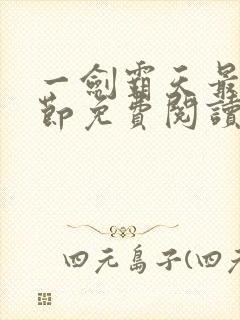 一劍霸天最
節免費閱讀
四元島子(四元